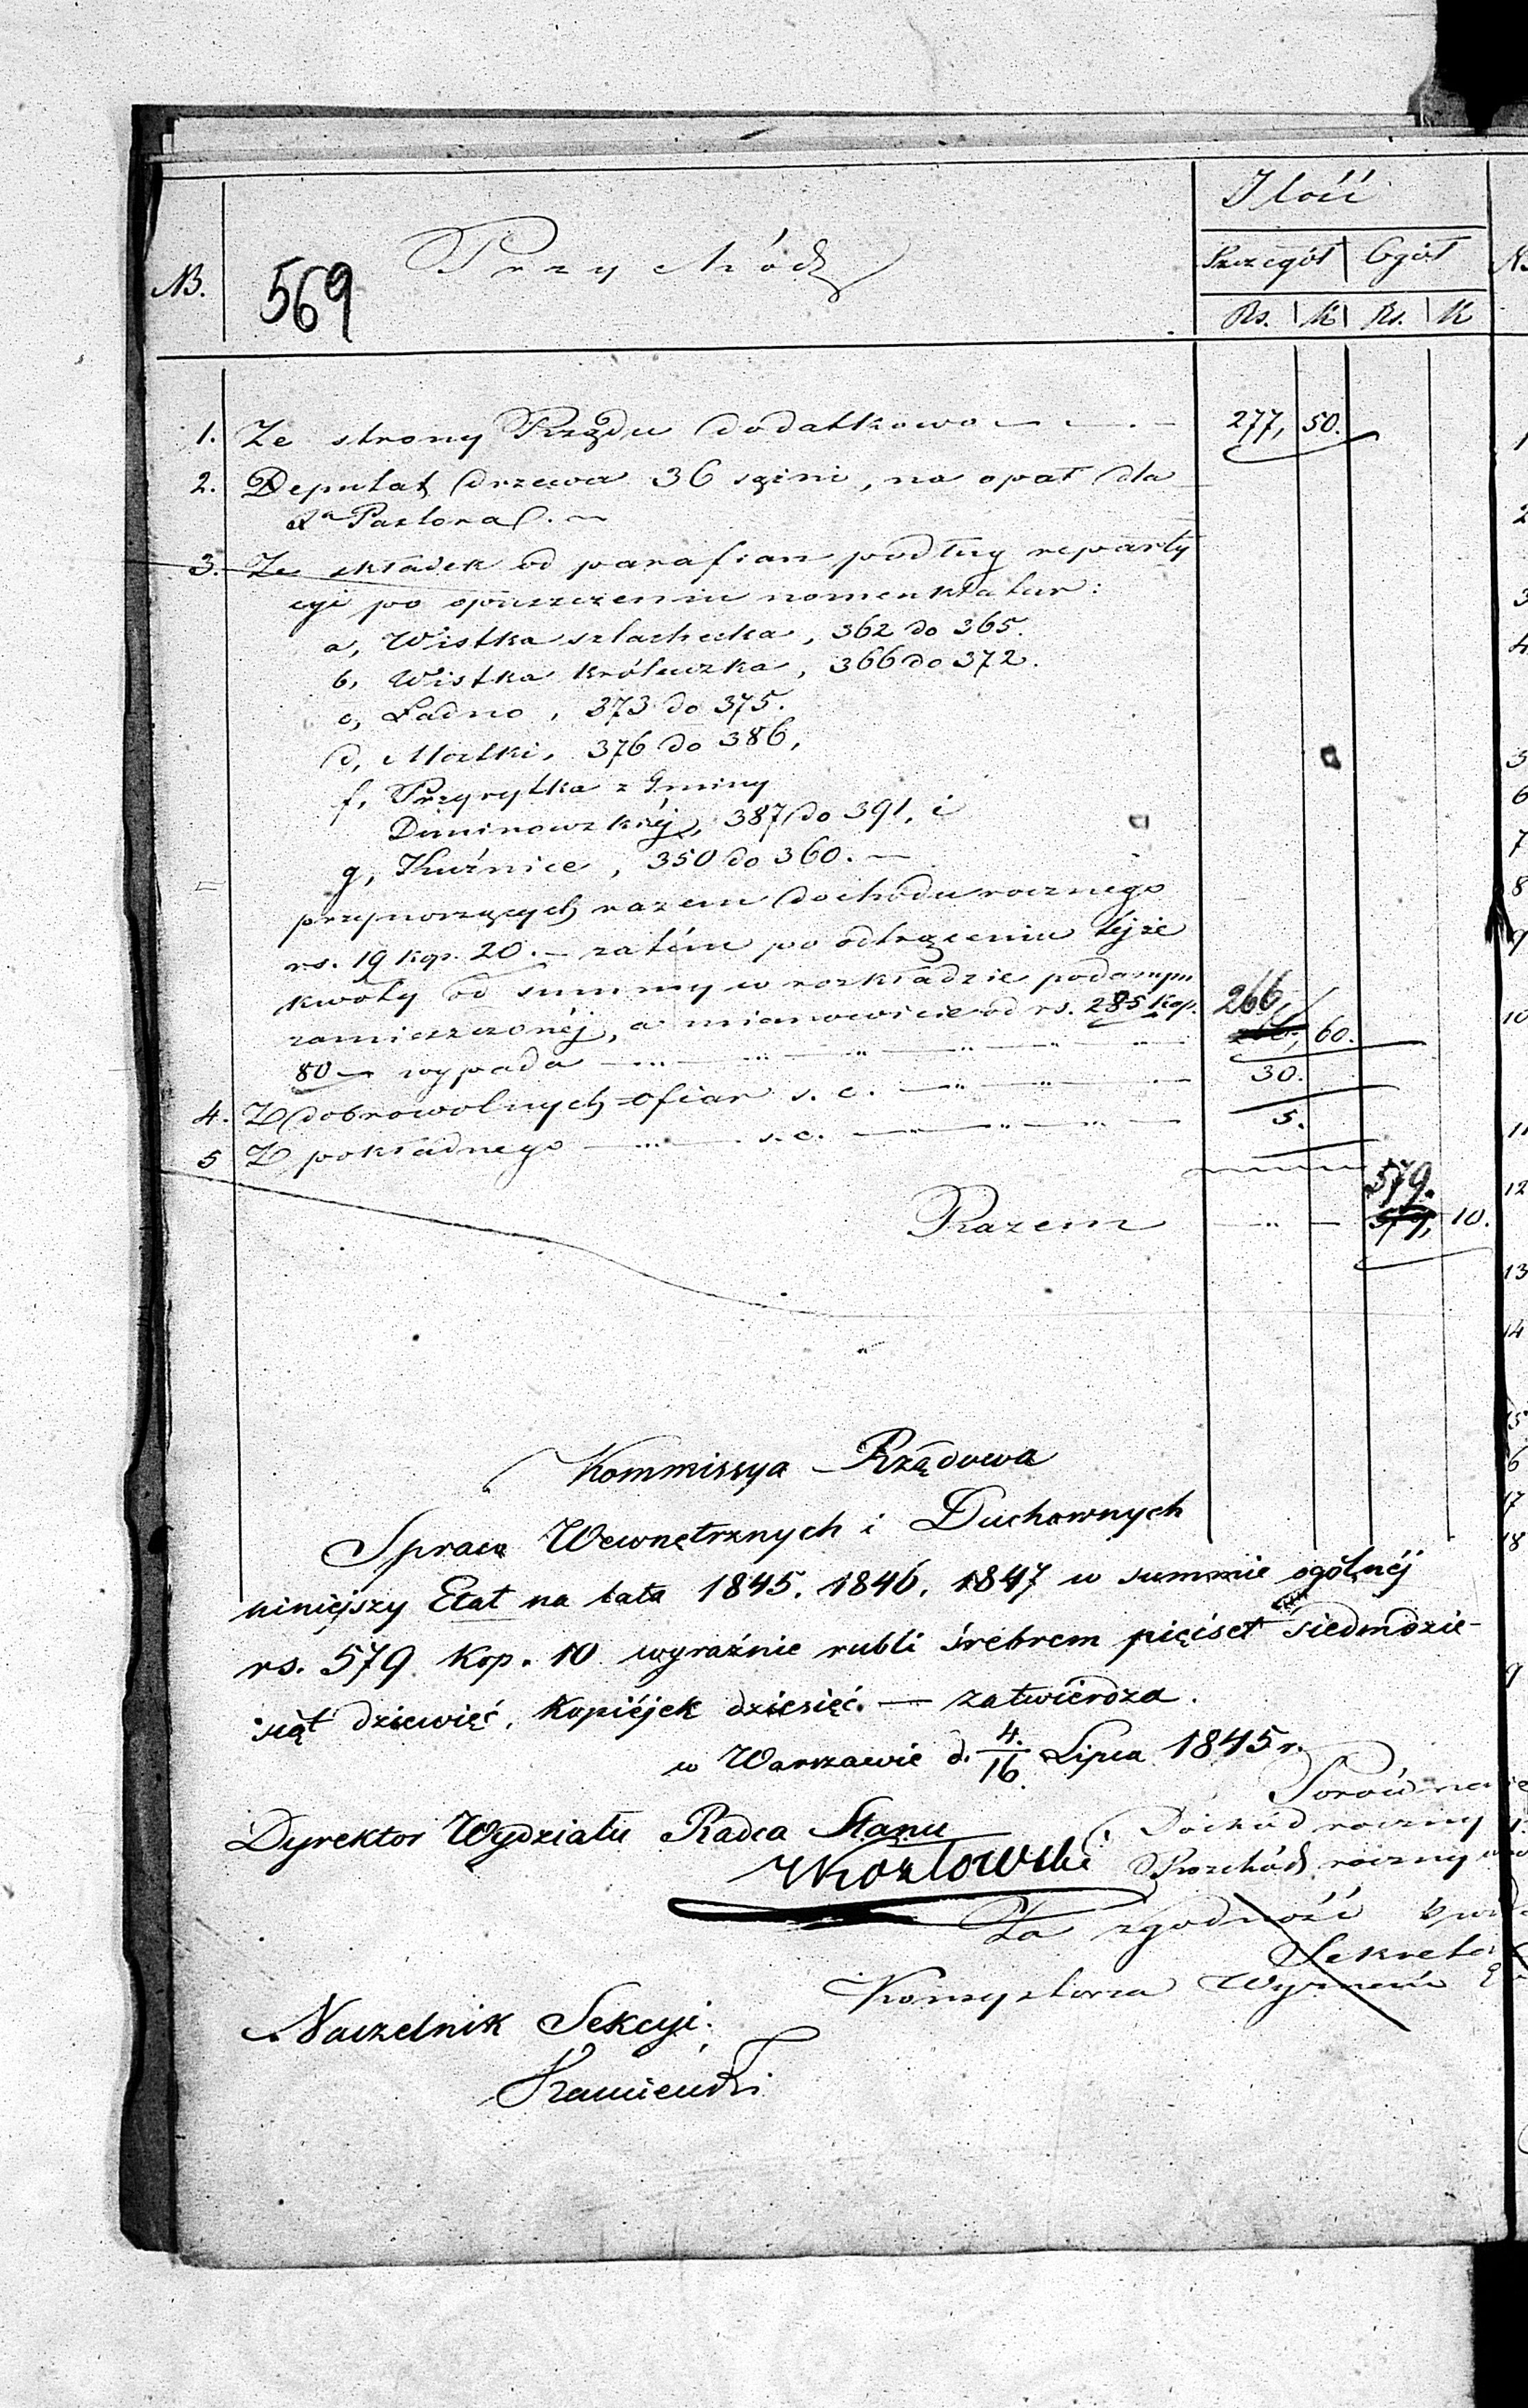 Ilość
NB. 569 Przychód Szczegół Ogół
Rs. K Rs. K
1. Ze strony Rządu dodatkowo 277, 50.
2. Deputat drzewa 36 sążni, na opał dla
Xa Pastora.
3. Ze składek od parafian podług reparty
cyi po opuszczeniu nomenklatur:
a, Wistka szlachecka, 362 do 365.
b, Wistka Królewska, 366 do 372.
c, Ładno, 373 do 375.
d, Mostki, 376 do 386,
f, Przyrytka z Gminy
Duninowskiej, 387 do 391, i
g, Kuźnice, 350 do 360.
przynoszących razem dochodu rocznego
rs. 19 kop. 20. zatém po odtrąceniu tejże
kwoty od summy w rozkładzie podanym
zamieszczonéj, a mianowicie od rs. 285 kop. 266,
80 wypada 60.
4. Z dobrowolnych ofiar s. c. 30.
5 Z pokładnego s. c. 5.
579.
Razem 10.
Kommissya Rządowa
Spraw Wewnętrznych i Duchownych
niniejszy Etat na lata 1845. 1846. 1847 w summie ogólnéj
rs. 579 Kop. 10 wyraźnie rubli śrebrem pięćset siedmdzie-
siąt dziewięć, Kopiéjek dziesięć. — zatwierdza.
w Warszawie d. 4/16 Lipca 1845 r.
Porówna
Dyrektor Wydziału Radca Stanu Dochód roczny
Kozłowski Rozchód roczny
Za zgodność
Sekreta
Konsystorza Wyznania
Naczelnik Sekcyi
Kamieński